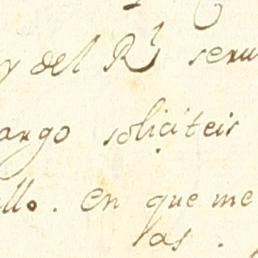 y del Rl seru
argo soliciteis
llo. en que me
las.